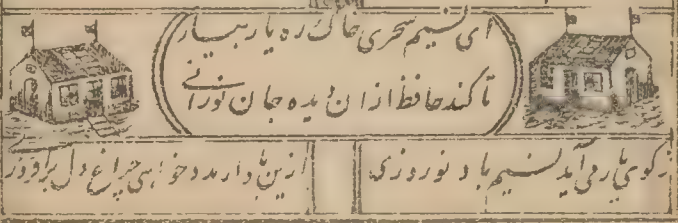 ای نسیم سحری خاک ره یار بیار
تا کند حافظ از ان دیده جان نورانے
زکوی یار می آید نسیم باد نوروزی
ازین باد ار مدد خواهی چراغ دل برافروزی